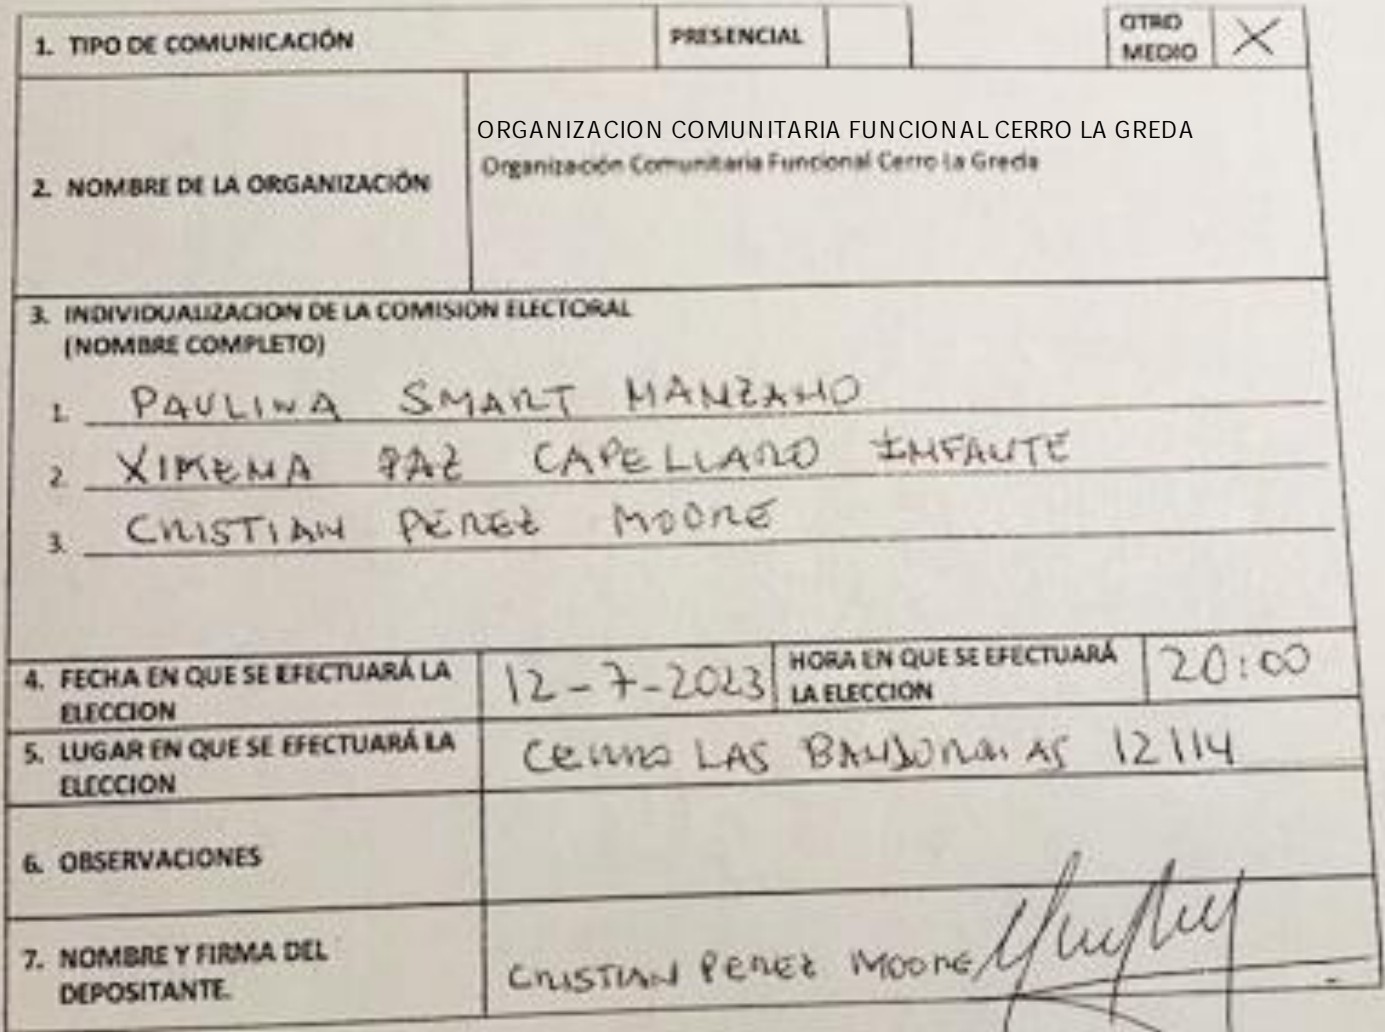 1. TIPO DE COMUNICACIÓN PRESENCIAL OTRO MEDIO X
ORGANIZACION COMUNITARIA FUNCIONAL CERRO LA GREDA
2. NOMBRE DE LA ORGANIZACIÓN Organización Comunitaria Funcional Cerro La Greda
3. INDIVIDUALIZACION DE LA COMISION ELECTORAL
(NOMBRE COMPLETO)
1. PAULINA SMART MANZANO
2. XIMENA PAZ CAPELLARO INFANTE
3. CRISTIAN PEREZ MOORE
4. FECHA EN QUE SE EFECTUARÁ LA ELECCION 12-7-2023 HORA EN QUE SE EFECTUARÁ LA ELECCION 20:00
5. LUGAR EN QUE SE EFECTUARÁ LA ELECCION CERRO LAS BANDURRIAS 12114
6. OBSERVACIONES
7. NOMBRE Y FIRMA DEL DEPOSITANTE. CRISTIAN PEREZ MOORE